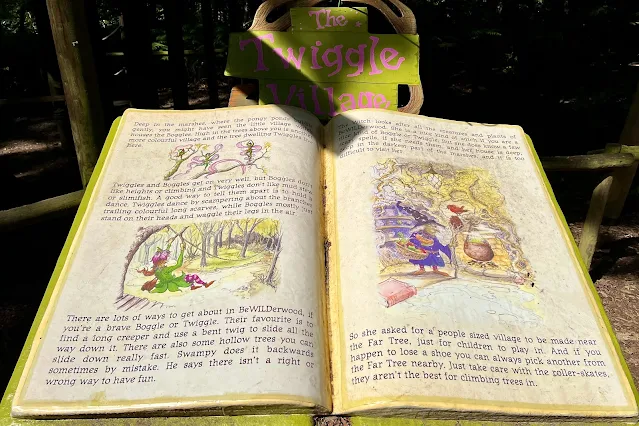 The
Twiggle
Village
Deep in the marshes, where the pongy ponds
gently, you might have seen the little village
houses the Boggles. High in the trees above you is another
more colourful village and the tree dwelling Twiggles
here.
Twiggles and Boggles get on very well, but Boggles don't
like heights or climbing and Twiggles don't like mud
or slimifish. A good way to tell them apart is to
dance. Twiggles dance by scampering about the branches
trailing colourful long scarves, while Boggles mostly just
stand on their heads and waggle their legs in the air.
There are lots of ways to get about in BeWILDerwood, if
you're a brave Boggle or Twiggle. Their favourite is to
find a long creeper and use a bent twig to slide all the
way down it. There are also some hollow trees you can
slide down really fast. Swampy does it backwards
sometimes by mistake. He says there isn't a right or
wrong way to have fun.
looks after all the creatures and plants of
She is a very kind of
of Boggle or Twiggle. But she does know a few
spells, if she needs them, and her house is deep
in the darkest part of the marshes, and it is too
difficult to visit her.
So she asked for a people sized village to be made near
the Far Tree, just for children to play in. And if you
happen to lose a shoe you can always pick another from
the Far Tree nearby. Just take care with the roller-skates,
they aren't the best for climbing trees in.